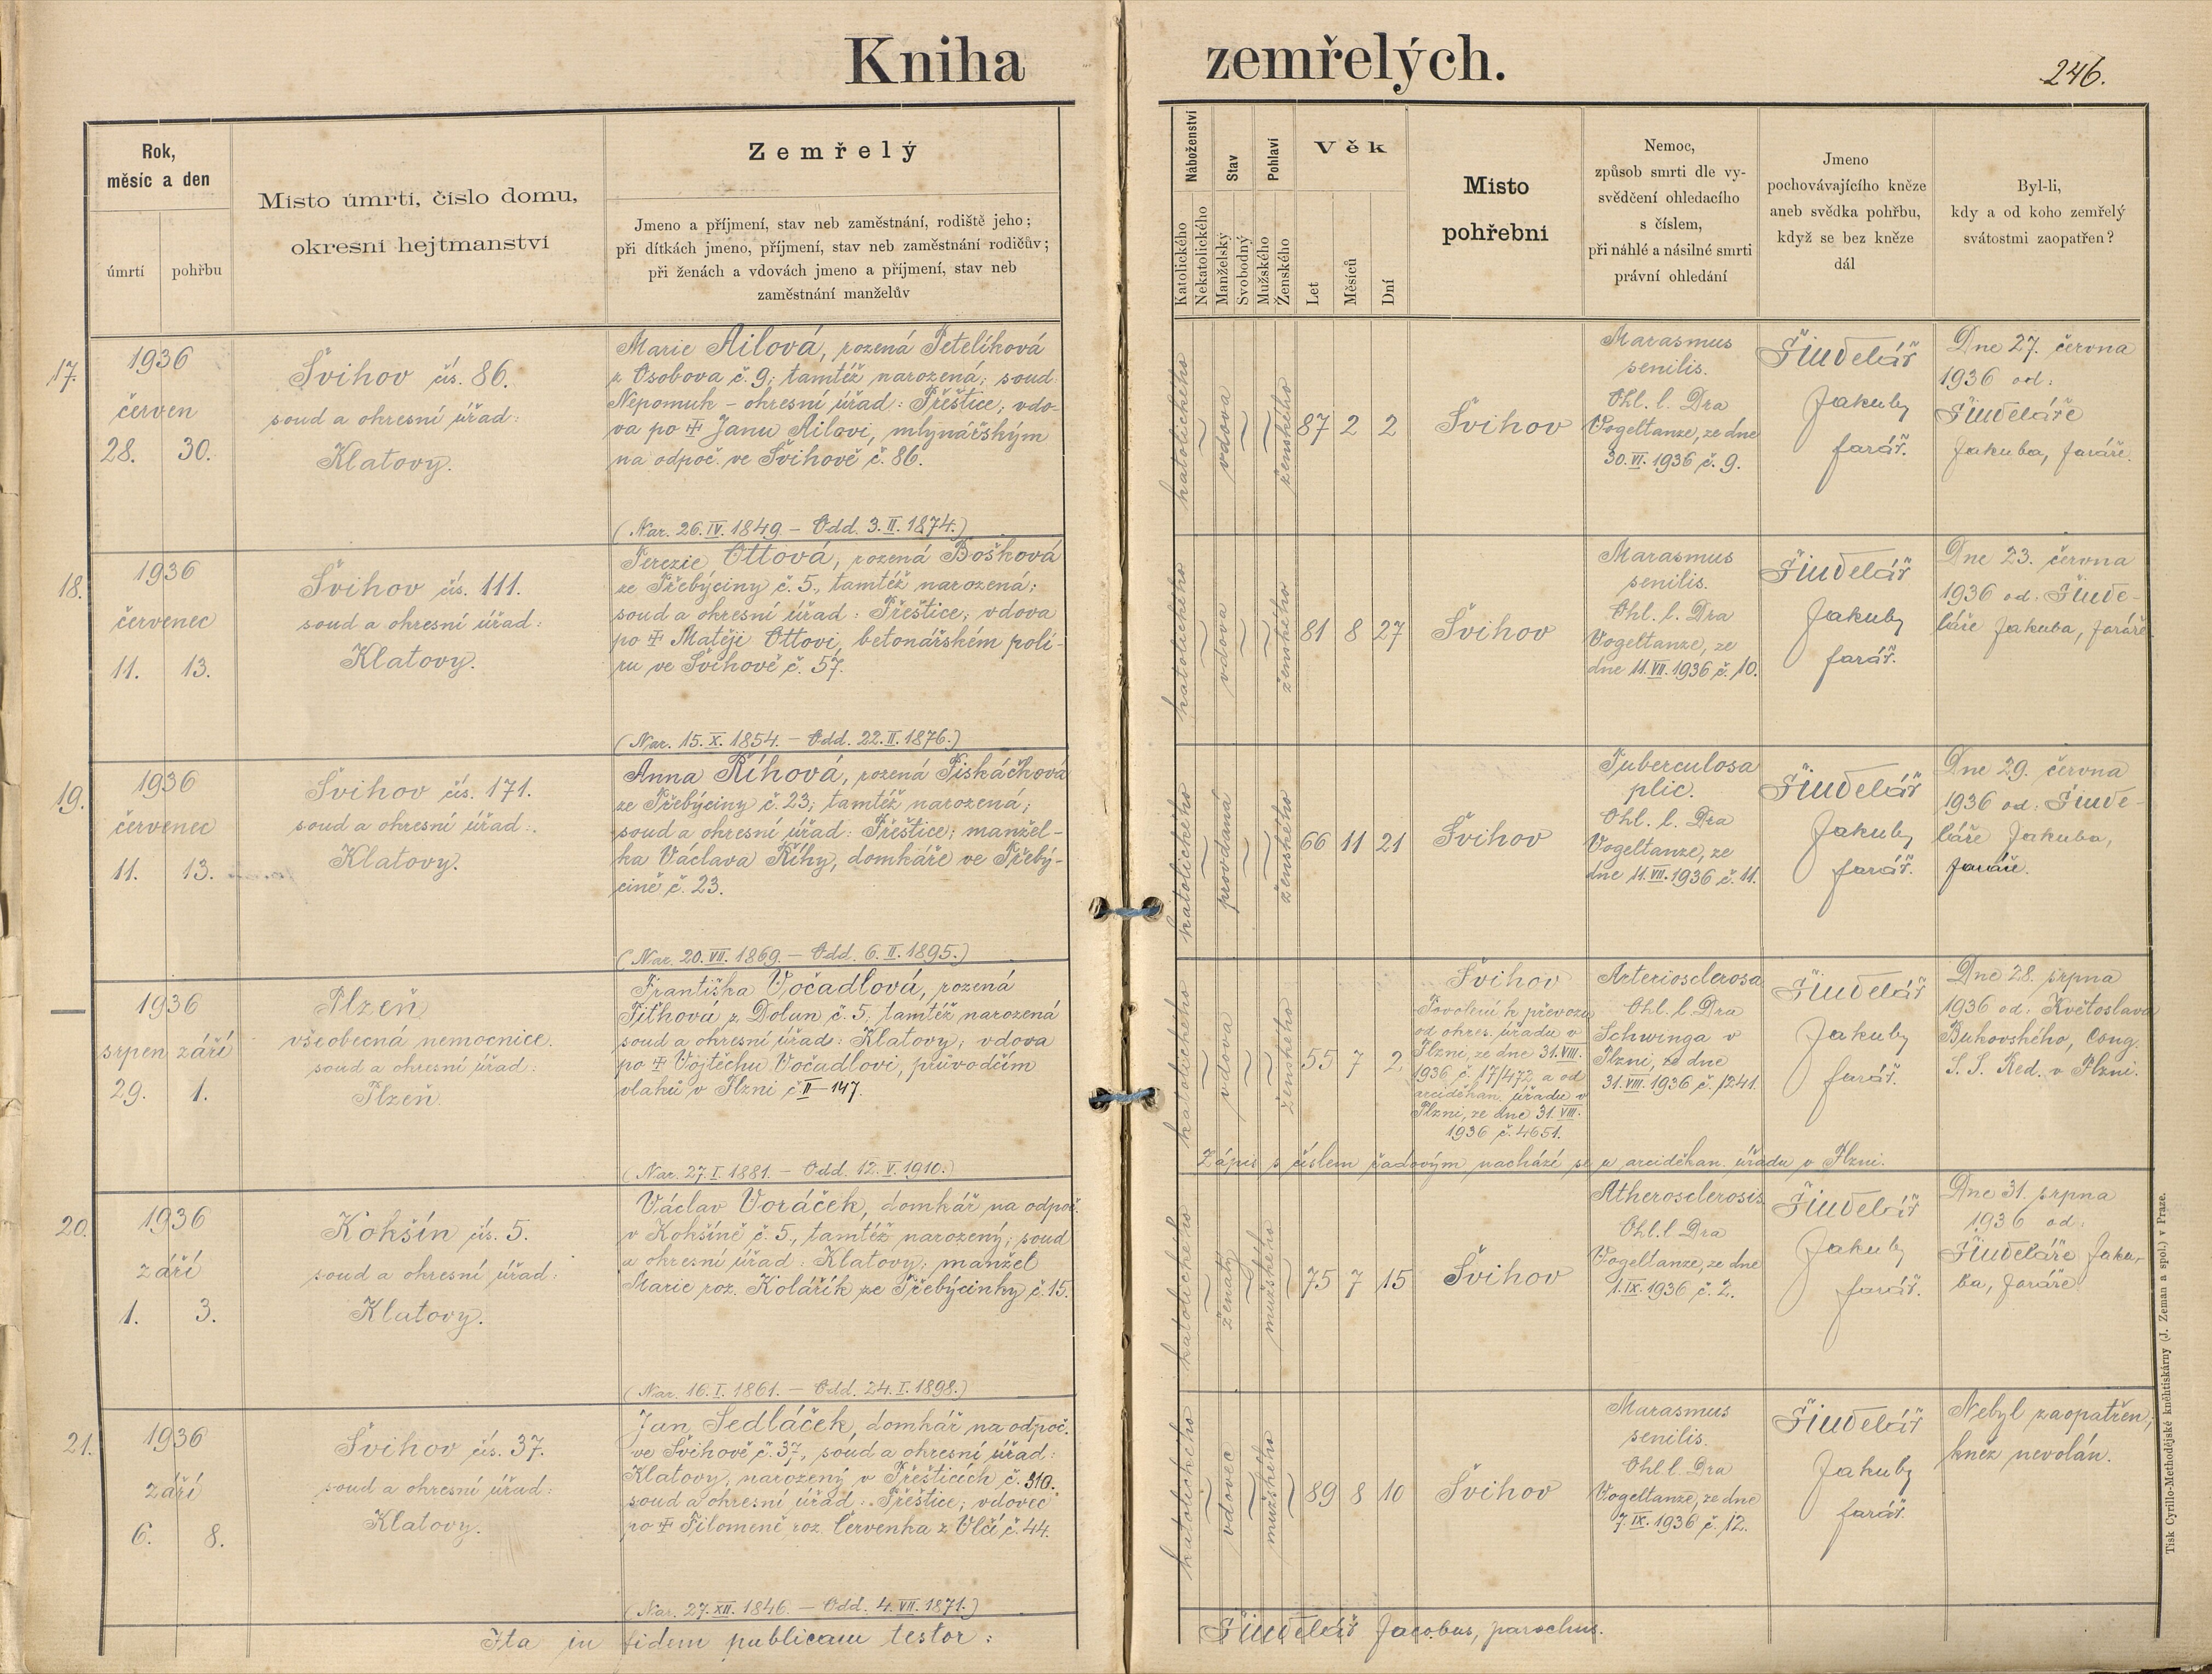 Kniha zemřelých.
246.
Rok,
měsíc a den
úmrtí
pohřbu
Místo úmrtí, číslo domu,
okresní hejtmanství
Zemřelý
Jmeno a příjmení, stav neb zaměstnání, rodiště jeho;
při dítkách jmeno, příjmení, stav neb zaměstnání rodičův;
při ženách a vdovách jmeno a příjmení, stav neb
zaměstnání manželův
Náboženství
Katolického
Nekatolického
Stav
Manželský
Svobodný
Pohlaví
Mužského
Ženského
Věk
Let
Měsíců
Dní
Místo
pohřební
Nemoc,
způsob smrti dle vy-
svědčení ohledacího
s číslem,
při náhlé a násilné smrti
právní ohledání
Jmeno
pochovávajícího kněze
aneb svědka pohřbu,
když se bez kněze
dál
Byl-li,
kdy a od koho zemřelý
svátostmi zaopatřen?
17.
1936
červen
28. 30.
Švihov čís. 86.
soud a okresní úřad:
Klatovy.
Marie Ailová, rozená Petelíková
z Osobova č. 9; tamtéž narozená; soud:
Nepomuk - okresní úřad: Přeštice; vdo-
va po ☩ Janu Ailovi, mlynářským
na odpoč. ve Švihově č. 86.
(Nar. 26. IV. 1849. - Odd. 3. II. 1874.)
katolického
vdova
ženského
87 2 2
Švihov
Marasmus
senilis.
Ohl. l. Dra
Vogeltanze, ze dne
30. VI. 1936 č. 9.
Šindelář
Jakub,
farář.
Dne 27. června
1936 od:
Šindeláře
Jakuba, faráře.
18.
1936
červenec
11. 13.
Švihov čís. 111.
soud a okresní úřad:
Klatovy.
Terezie Ottová, rozená Bošková
ze Třebýciny č. 5., tamtéž narozená;
soud a okresní úřad: Přeštice; vdova
po ☩ Matěji Ottovi, betonářském polí-
ru ve Švihově č. 57.
(Nar. 15. X. 1854. - Odd. 22. II. 1876.)
katolického
vdova
ženského
81 8 27
Švihov
Marasmus
senilis.
Ohl. l. Dra
Vogeltanze, ze
dne 11. VII. 1936 č. 10.
Šindelář
Jakub,
farář.
Dne 23. června
1936 od: Šinde-
láře Jakuba, faráře.
19.
1936
červenec
11. 13.
Švihov čís. 171.
soud a okresní úřad:
Klatovy.
Anna Říhová, rozená Piskáčková
ze Třebýciny č. 23; tamtéž narozená;
soud a okresní úřad: Přeštice; manžel-
ka Václava Říhy, domkáře ve Třebý-
cině č. 23.
(Nar. 20. VII. 1869. - Odd. 6. II. 1895.)
katolického
provdaná
ženského
66 11 21
Švihov
Tuberculosa
plic.
Ohl. l. Dra
Vogeltanze, ze
dne 11. VII. 1936 č. 11.
Šindelář
Jakub,
farář.
Dne 29. června
1936 od: Šinde-
láře Jakuba,
faráře.
—
1936
srpen září
29. 1.
Plzeň,
všeobecná nemocnice.
soud a okresní úřad:
Plzeň.
Františka Vočadlová, rozená
Fithová z Dolan č. 5; tamtéž narozená
soud a okresní úřad: Klatovy; vdova
po ☩ Vojtěchu Vočadlovi, průvodčím
vlaků v Plzni č II-147.
(Nar. 27. I. 1881. - Odd. 12. V. 1910.)
katolického
vdova
ženského
55 7 2
Švihov
Povolení k převozu
od okres. úřadu v
Plzni, ze dne 31. VIII.
1936 č. 17/472 a od
arciděkan. úřadu v
Plzni, ze dne 31. VIII.
1936 č. 4651.
Arteriosclerosa
Ohl. l. Dra
Schwinga v
Plzni, ze dne
31. VIII. 1936 č. 1241.
Šindelář
Jakub,
farář.
Dne 28. srpna
1936 od: Květoslava
Bukovského, Cong.
S. S. Red. v Plzni.
Zápis s číslem řadovým nachází se u arciděkan. úřadu v Plzni.
20.
1936
září
1. 3.
Kokšín čís. 5.
soud a okresní úřad:
Klatovy.
Václav Voráček, domkář na odpoč.
v Kokšíně č. 5., tamtéž narozený; soud
a okresní úřad: Klatovy; manžel
Marie roz. Kolářík ze Třebýcinky č. 15.
(Nar. 16. I. 1861. - Odd. 24. I. 1898.)
katolického
ženatý
mužského
75 7 15
Švihov
Atherosclerosis
Ohl. l. Dra
Vogeltanze, ze dne
1. IX. 1936 č. 2.
Šindelář
Jakub,
farář.
Dne 31. srpna
1936 od:
Šindeláře Jaku-
ba, faráře.
21.
1936
září
6. 8.
Švihov čís. 37.
soud a okresní úřad:
Klatovy.
Jan Sedláček, domkář na odpoč.
ve Švihově č. 37., soud a okresní úřad:
Klatovy, narozený v Přešticích č. 310.
soud a okresní úřad: Přeštice; vdovec
po ☩ Filomeně roz. Červenka z Vlčí č. 44.
(Nar. 27. XII. 1846. - Odd. 4. VII. 1871.)
katolického
vdovec
mužského
89 8 10
Švihov
Marasmus
senilis.
Ohl. l. Dra
Vogeltanze, ze dne
7. IX. 1936 č. 12.
Šindelář
Jakub,
farář.
Nebyl zaopatřen,
kněz nevolán.
Ita in fidem publicam testor: Šindelář Jacobus, parochus.
Tisk Cyrillo-Methodějské knihtiskárny (J. Zeman a spol.) v Praze.